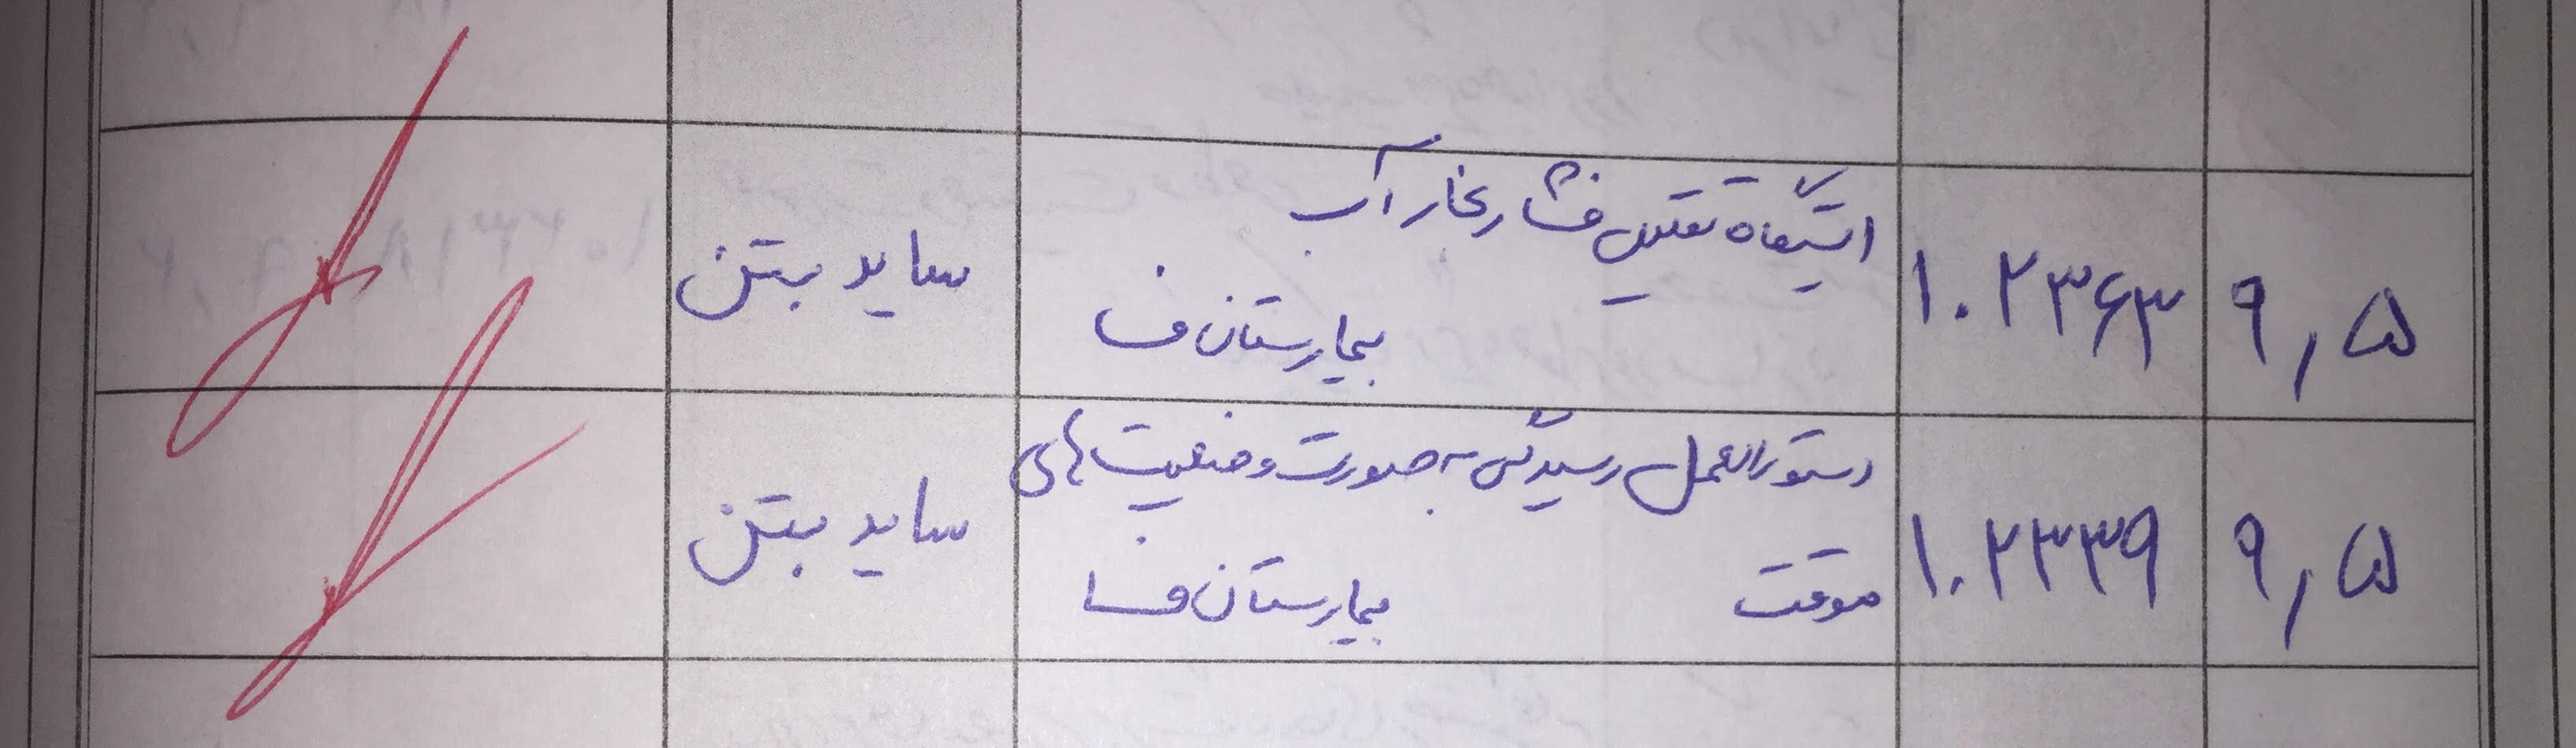 ۹,۵
۱۰۲۳۶۳
ایستگاه تقلیل فشار بخار آب
بیمارستان فسا
ساید بتن
۹,۵
۱۰۲۳۳۹
دستورالعمل رسیدگی به صورت وضعیت های
موقت بیمارستان فسا
ساید بتن